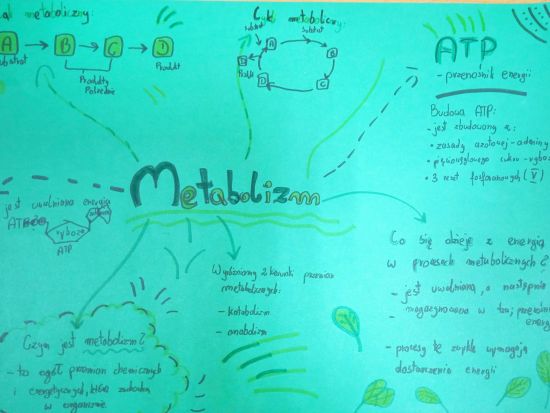 metaboliczny:
A → B → C → D
Substrat
Produkty
Pośrednie
Produkt
Cykl metaboliczny:
Substrat
Substrat
A
B
C
D
Produkt
ATP
- przenośnik energii
Budowa ATP:
- jest zbudowany z:
• zasady azotowej - adeniny
• pięciowęglowego cukru - rybozy
• 3 reszt fosforanowych (V)
Metabolizm
jest uwalniana energia
ryboza
ATP
Wyróżniamy 2 kierunki przemian
metabolicznych:
- katabolizm
- anabolizm
Co się dzieje z energią
w procesach metabolicznych?
- jest uwalniana, a następnie
- magazynowana w tzw.
energii
- procesy te zwykle wymagają
dostarczenia energii
Czym jest metabolizm?
- to ogół przemian chemicznych
i energetycznych, które zachodzą
w organizmie